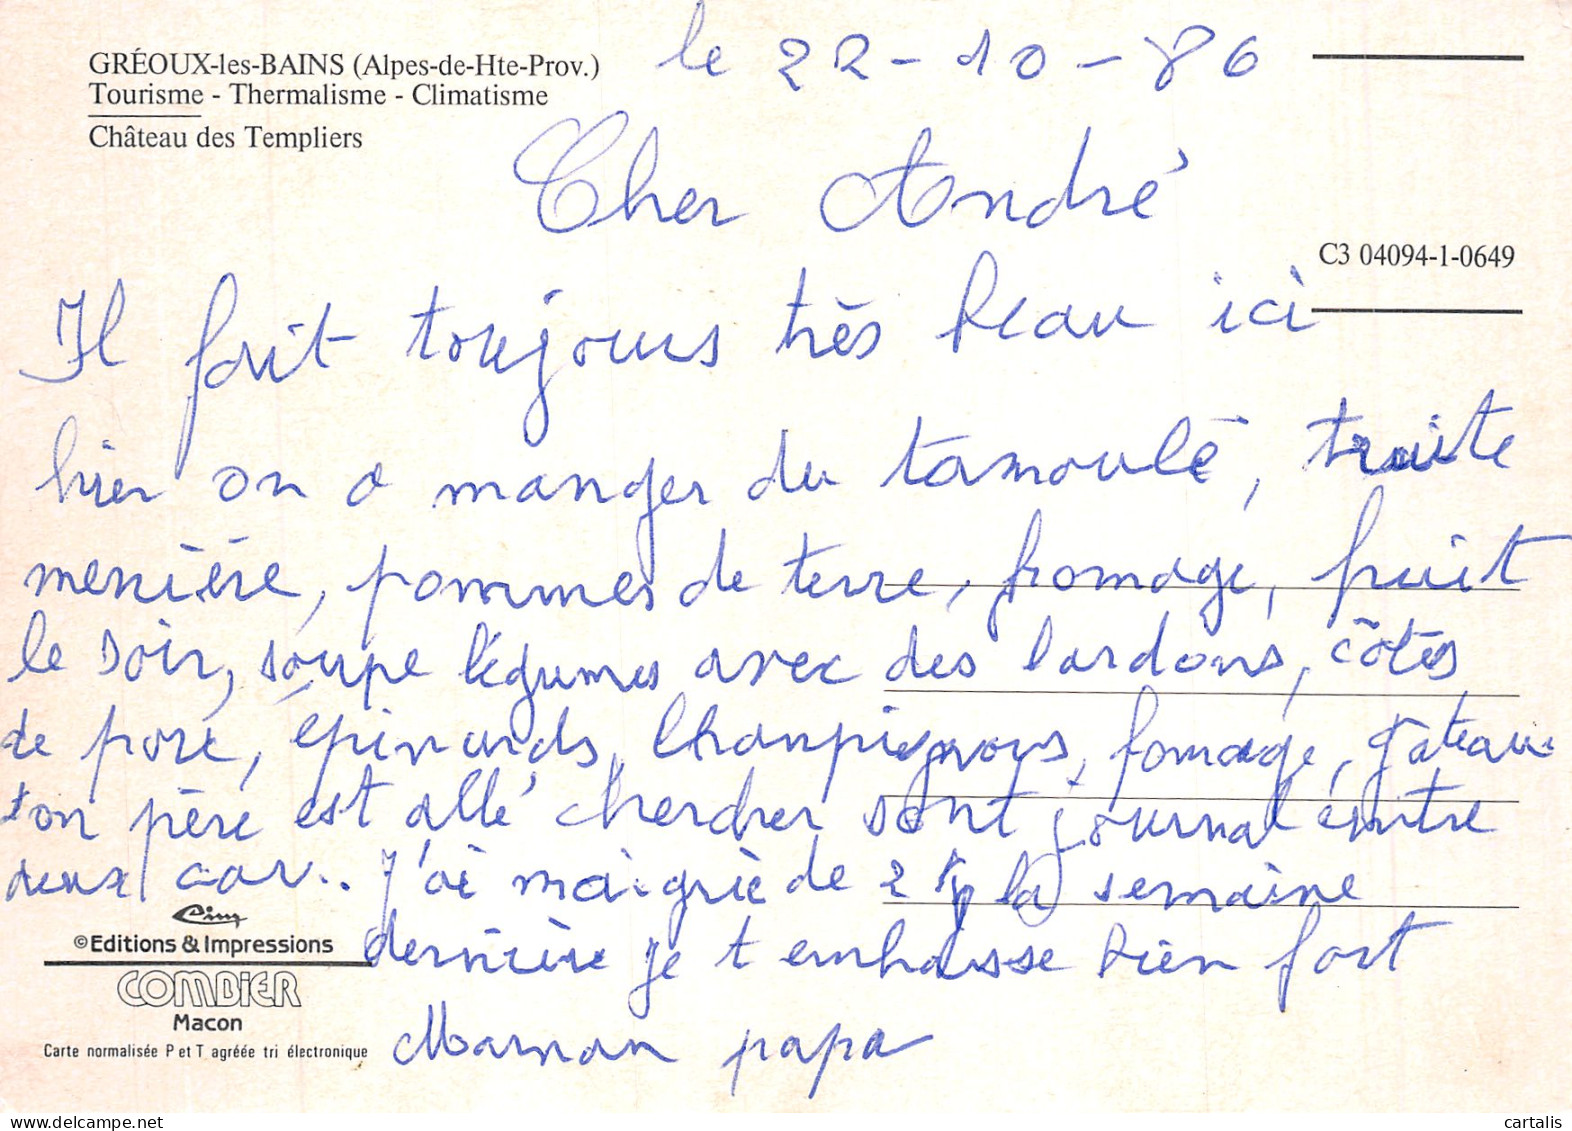 GRÉOUX-les-BAINS (Alpes-de-Hte-Prov.)
Tourisme - Thermalisme - Climatisme
Château des Templiers
le 22-10-86
Cher André
C3 04094-1-0649
Il fait toujours très beau ici
hier on a manger du tamoulé, truite
menière, pommes de terre, fromage, fruit
le soir, soupe légumes avec des lardons, côtes
de porc, épinards, champignons, fomage, gateau.
ton père est allé chercher sont journal entre
deux car.. J'ai maigrie de 2 la semaine
dernière je t embrasse bien fort
Maman papa
Cim
©Editions & Impressions
COMBIER
Macon
Carte normalisée P et T agréée tri électronique
delcampe.net
cartalis